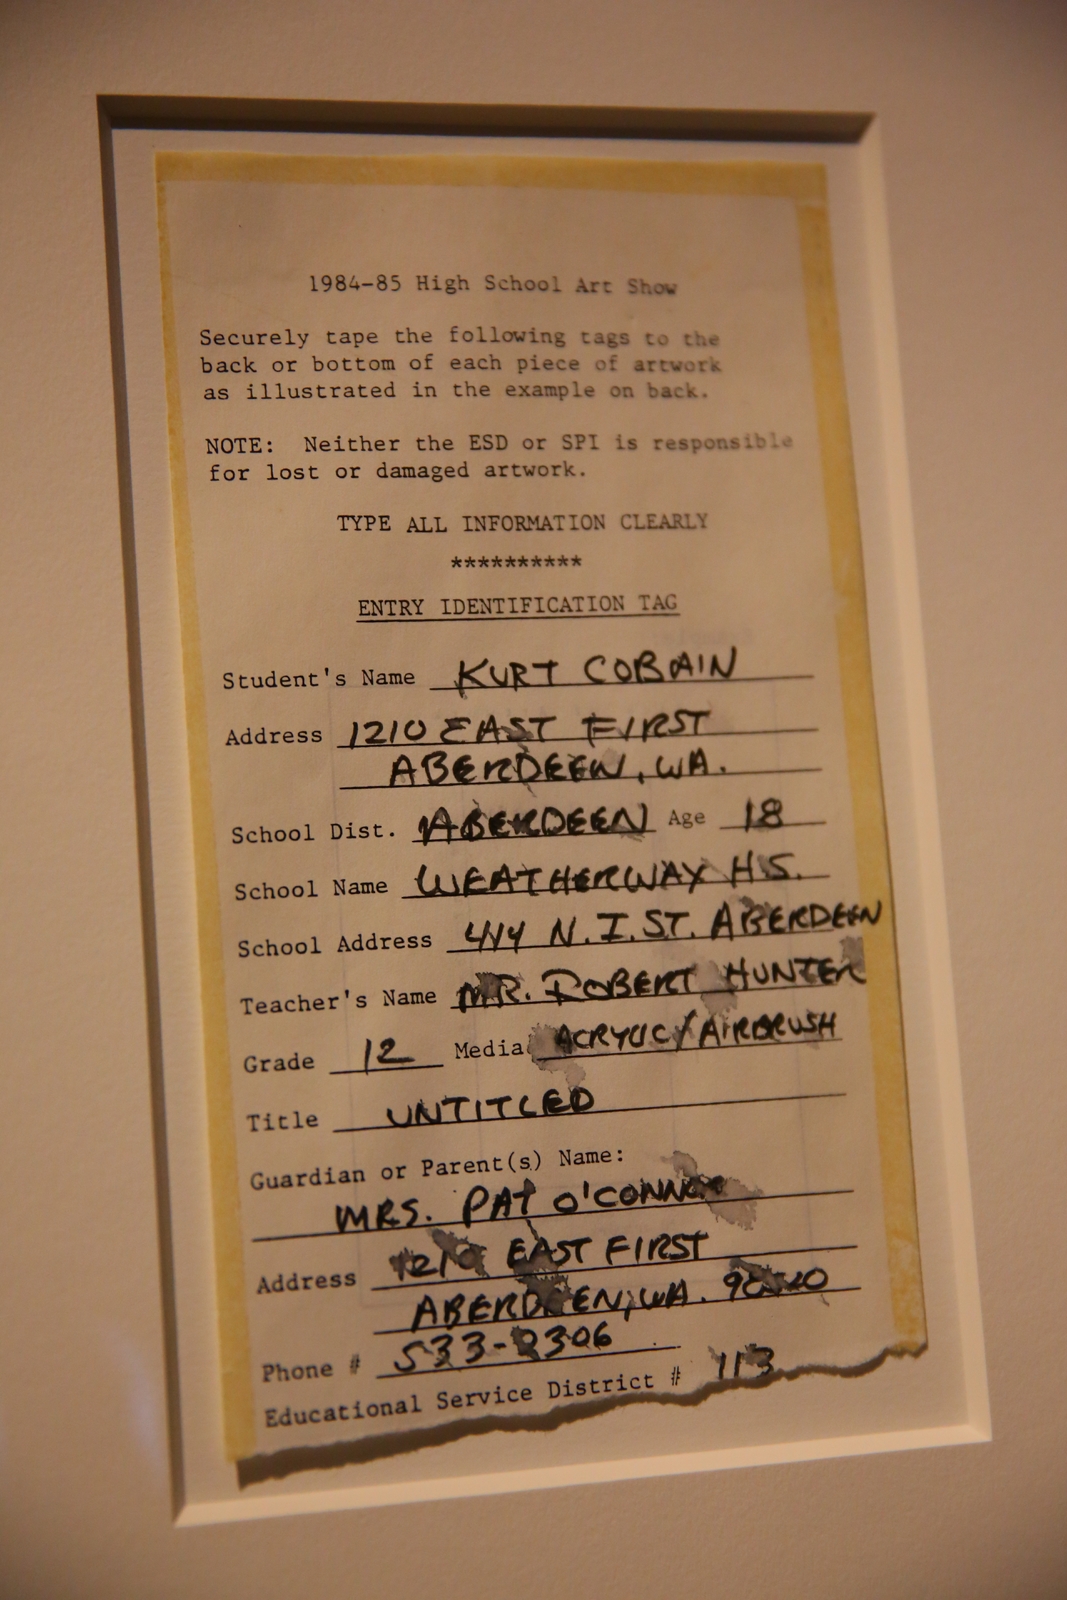 1984-85 High School Art Show
Securely tape the following tags to the
back or bottom of each piece of artwork
as illustrated in the example on back.
NOTE: Neither the ESD or SPI is responsible
for lost or damaged artwork.
TYPE ALL INFORMATION CLEARLY
**********
ENTRY IDENTIFICATION TAG
Student's Name KURT COBAIN
Address 1210 EAST FIRST
ABERDEEN, WA.
School Dist. ABERDEEN Age 18
School Name WEATHERWAX H.S.
School Address 414 N. I. ST. ABERDEEN
Teacher's Name MR. ROBERT HUNTER
Grade 12 Media ACRYLIC/AIRBRUSH
Title UNTITLED
Guardian or Parent(s) Name:
MRS. PAT O'CONNOR
Address 1210 EAST FIRST
ABERDEEN, WA.
Phone #
Educational Service District # 113